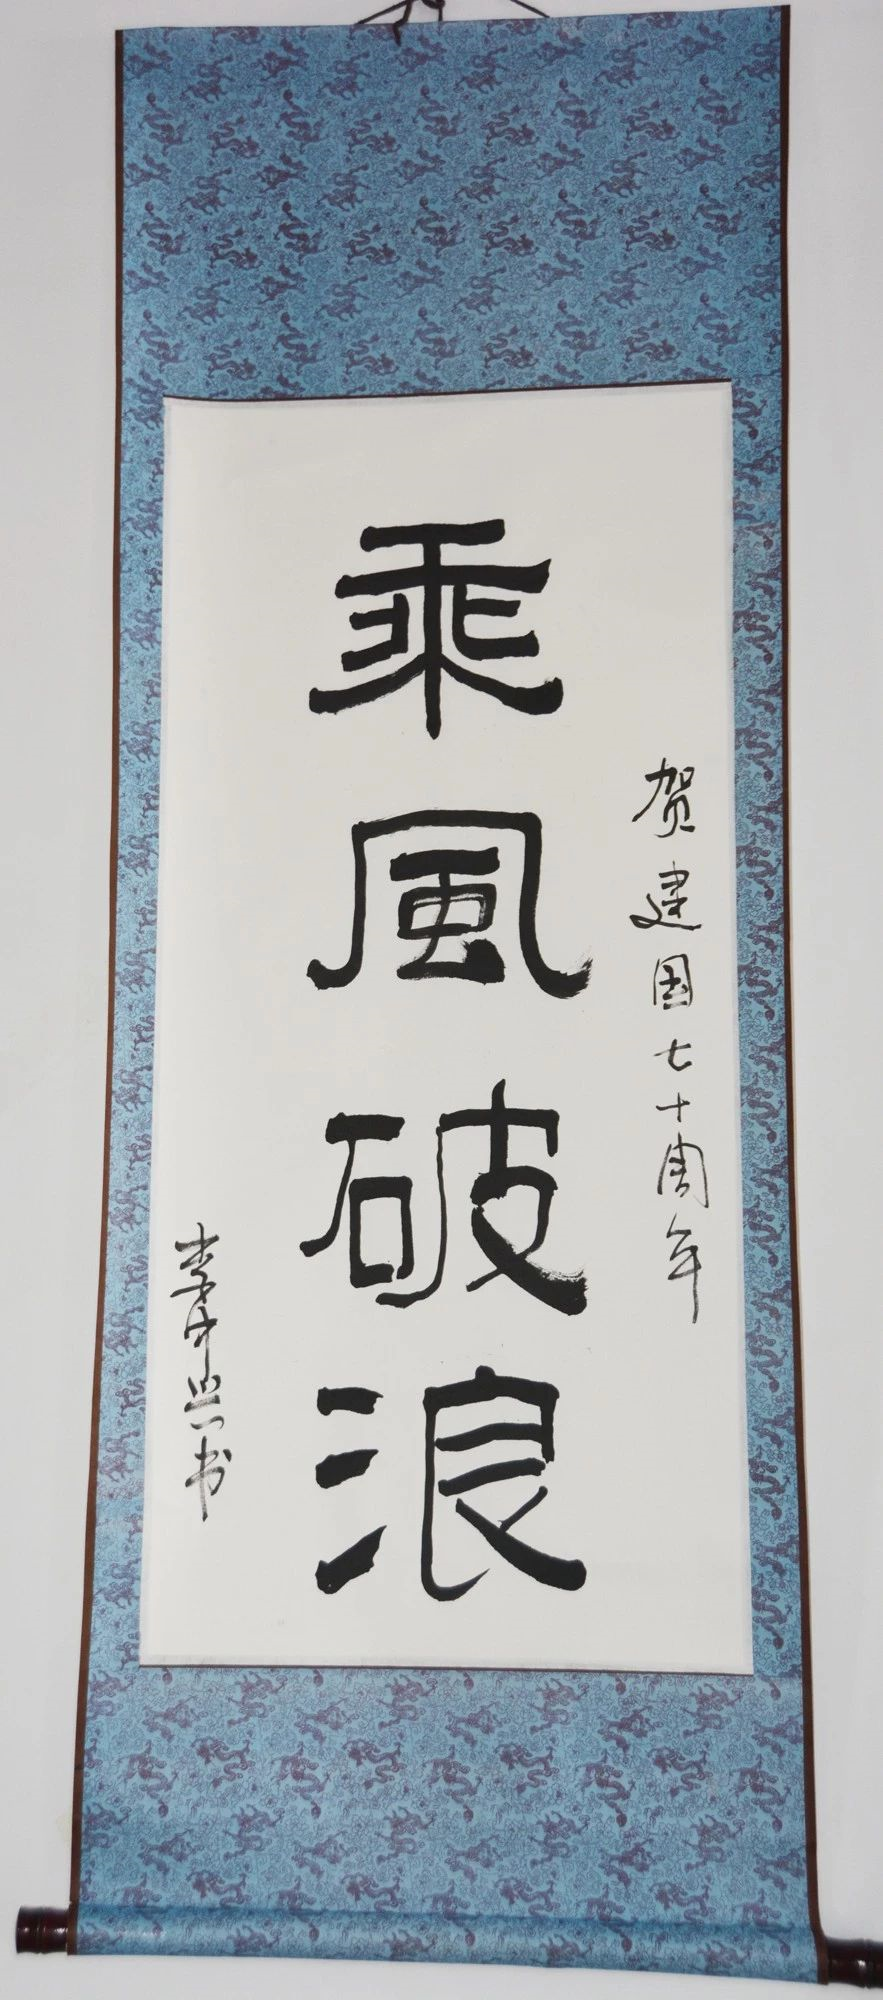 贺建国七十周年
乘風破浪
李中兴书